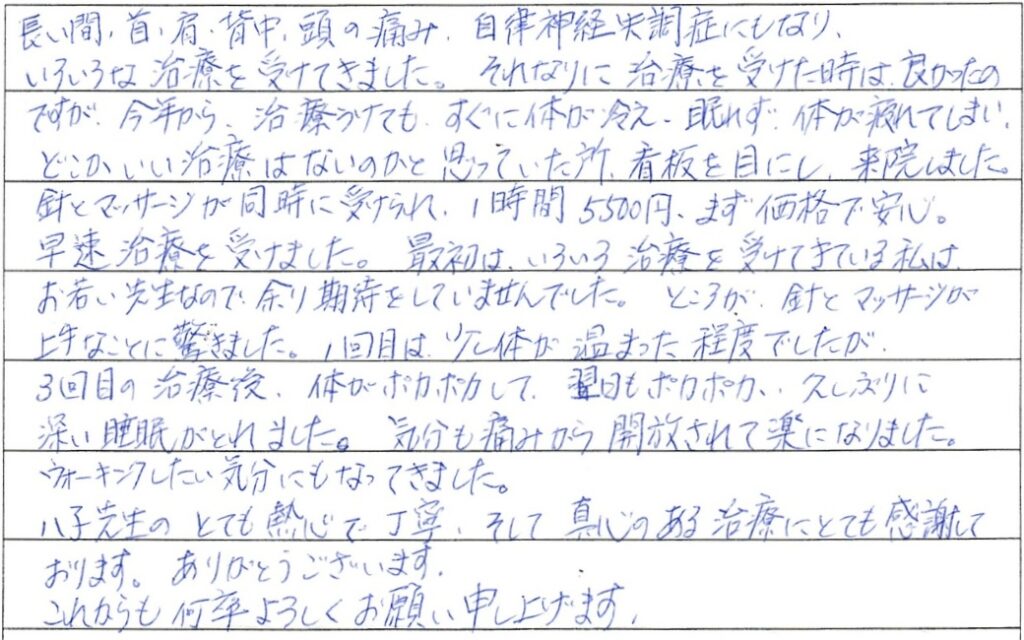 長い間、首、肩、背中、頭の痛み、自律神経失調症にもなり、
いろいろな治療を受けてきました。それなりに治療を受けた時は、良かったの
ですが、今年から、治療うけても、すぐに体が冷え、眠れず、体が疲れてしまい、
どこかいい治療はないのかと思っていた所、看板を目にし、来院しました。
針とマッサージが同時に受けられ、1時間5500円、まず価格で安心。
早速治療を受けました。最初は、いろいろ治療を受けてきている私は、
お若い先生なので、余り期待をしていませんでした。ところが、針とマッサージが
上手なことに驚きました。1回目は、少し体が温まった程度でしたが、
3回目の治療後、体がポカポカして、翌日もポカポカ、久しぶりに
深い睡眠がとれました。気分も痛みから開放されて楽になりました。
ウォーキングしたい気分にもなってきました。
八子先生のとても熱心で丁寧、そして真心のある治療にとても感謝して
おります。ありがとうございます。
これからも何卒よろしくお願い申し上げます。